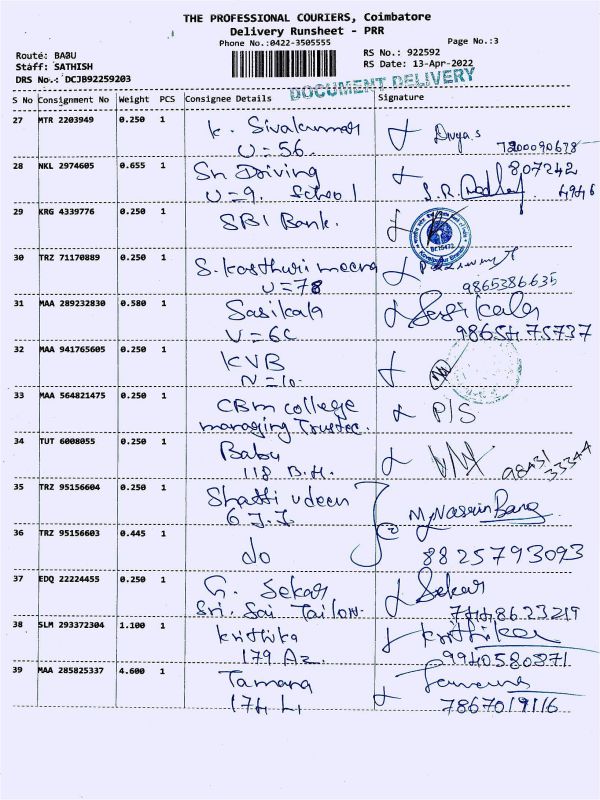 THE PROFESSIONAL COURIERS, Coimbatore
Delivery Runsheet - PRR
Phone No.:0422-3505555
Page No.:3
Route: BABU
RS No.: 922592
Staff: SATHISH
RS Date: 13-Apr-2022
DRS No.: DCJB92259203
DOCUMENT DELIVERY
S No Consignment No Weight PCS Consignee Details Signature
27 MTR 2203949 0.250 1 K. Sivakumar
U=56. Divya.s 7200090678
28 NKL 2974605 0.655 1 Sri Driving 807242
U=9. School S.R. 4946
29 KRG 4339776 0.250 1 SBI Bank.
30 TRZ 71170889 0.250 1 S. Kasthuri meena
U=78 9865386635
31 MAA 289232830 0.580 1 Sasikala Sasikala
U=6C 9865475737
32 MAA 941765605 0.250 1 KVB
N=10.
33 MAA 564821475 0.250 1 CBM college P/S
managing Trustee.
34 TUT 6008055 0.250 1 Babu
118 B.H. 98431 33344
35 TRZ 95156604 0.250 1 6 J.J.
36 TRZ 95156603 0.445 1 do 8825793093
37 EDQ 22224455 0.250 1 G. Sekar Sekar
Sri. Sai Tailor. 7448623219
38 SLM 293372304 1.100 1 Krithika Krithika
179 Az. 9940580871
39 MAA 285825337 4.600 1 Tamana
174 L, 7867019116